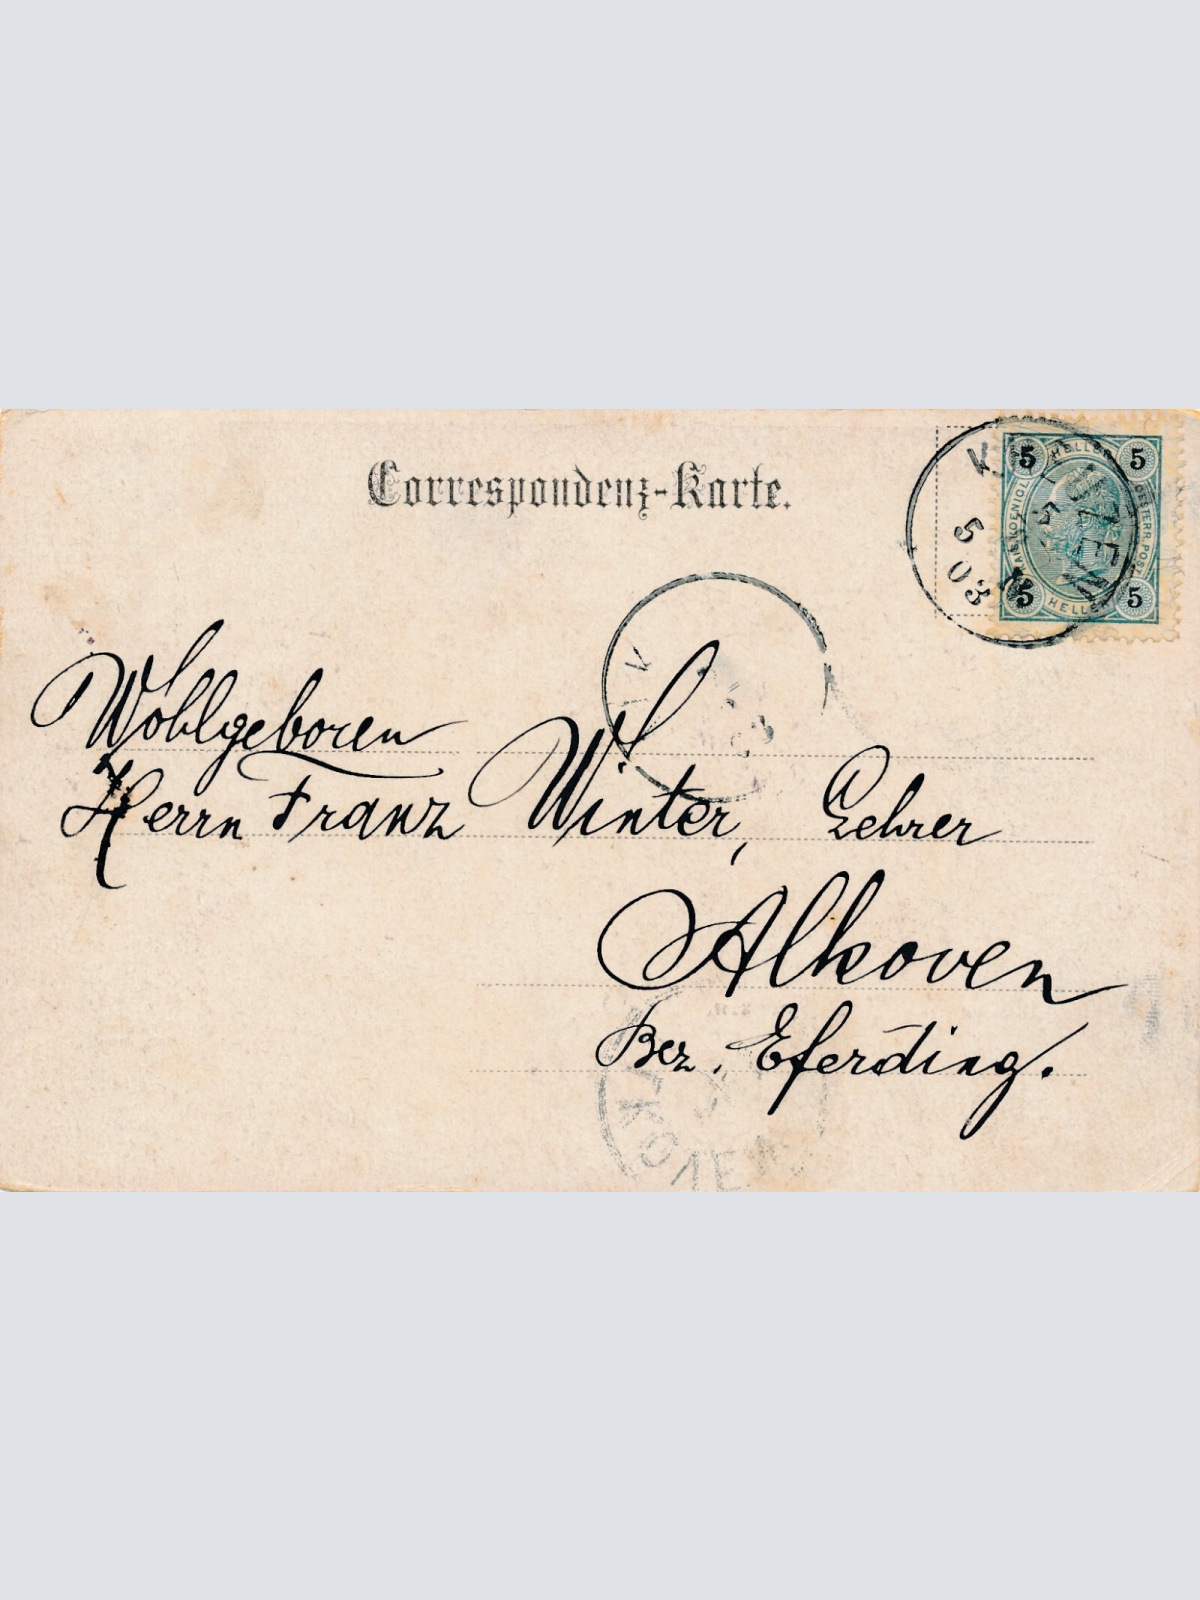 Correspondenz-Karte.
5 HELLER 5
KAIS. KOENIGL. OESTERR. POST
5 HELLER 5
5
03
Wohlgeboren
Herrn Franz Winter, Lehrer
Alkoven
Bez. Eferding.